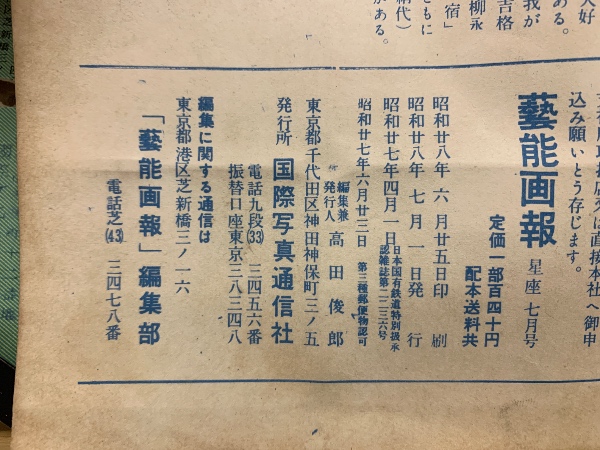 込み願いとう存じます。
藝能画報 星座 七月号
定価一部百四十円
配本送料共
昭和廿八年 六 月廿五日印 刷
昭和廿八年 七 月 一 日発 行
昭和廿七年四月一日 日本国有鉄道特別扱承認雑誌第二二三六号
昭和廿七年六月廿三日 第三種郵便物認可
編集兼発行人 高田俊郎
東京都千代田区神田神保町三ノ五
発行所 国際写真通信社
電話九段(33) 三四五六番
振替口座東京三八三四八
編集に関する通信は
東京都港区芝新橋三ノ一六
「藝能画報」編集部
電話芝(43) 三四七八番